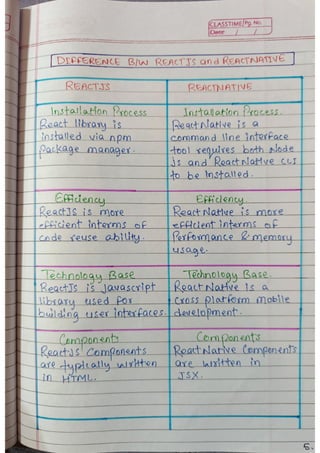 CLASSTIME/Pg. No.
Date / /
DIFFERENCE B/W REACTJS and REACTNATIVE
REACTJS
REACTNATIVE
Installation Process
React library is
installed via npm
package manager.
Installation Process.
React Native is a
command line interface
tool requires both Node
Js and React Native CLI
to be installed.
Efficiency
ReactJS is more
efficient interms of
code reuse ability.
Efficiency.
React Native is more
efficient interms of
Performance & memory
usage.
Technology Base
ReactJs is javascript
library used for
building user interfaces.
Technology Base.
React Native is a
Cross platform mobile
development.
Components
ReactJs' Components
are typically written
in HTML.
Components
React Native Components
are written in
JSX.
5.